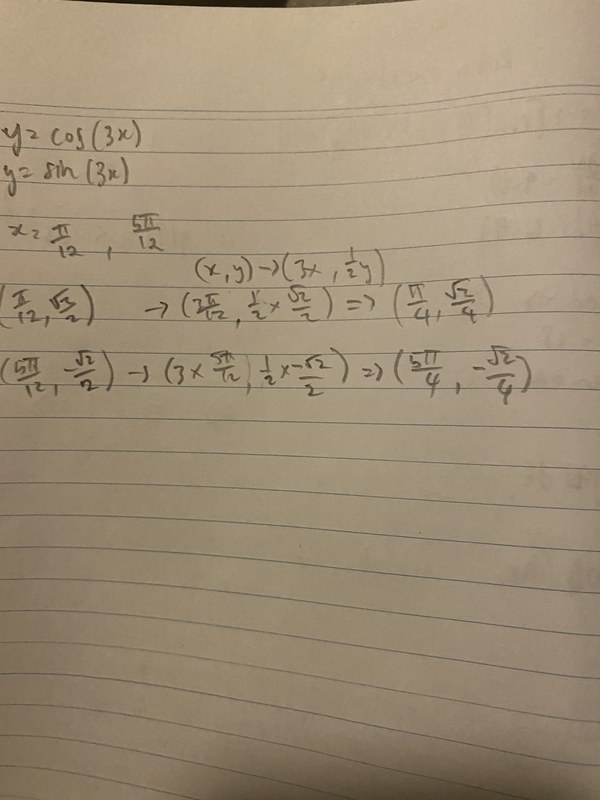 y = cos(3x)
y = sin(3x)
x = π/12, 5π/12
(x, y) → (3x, 1/2y)
(π/12, √3/2) → (3π/12, 1/2 × √2/2) ⇒ (π/4, √2/4)
(5π/12, -√2/2) → (3 × 5π/12, 1/2 × -√2/2) ⇒ (5π/4, -√2/4)